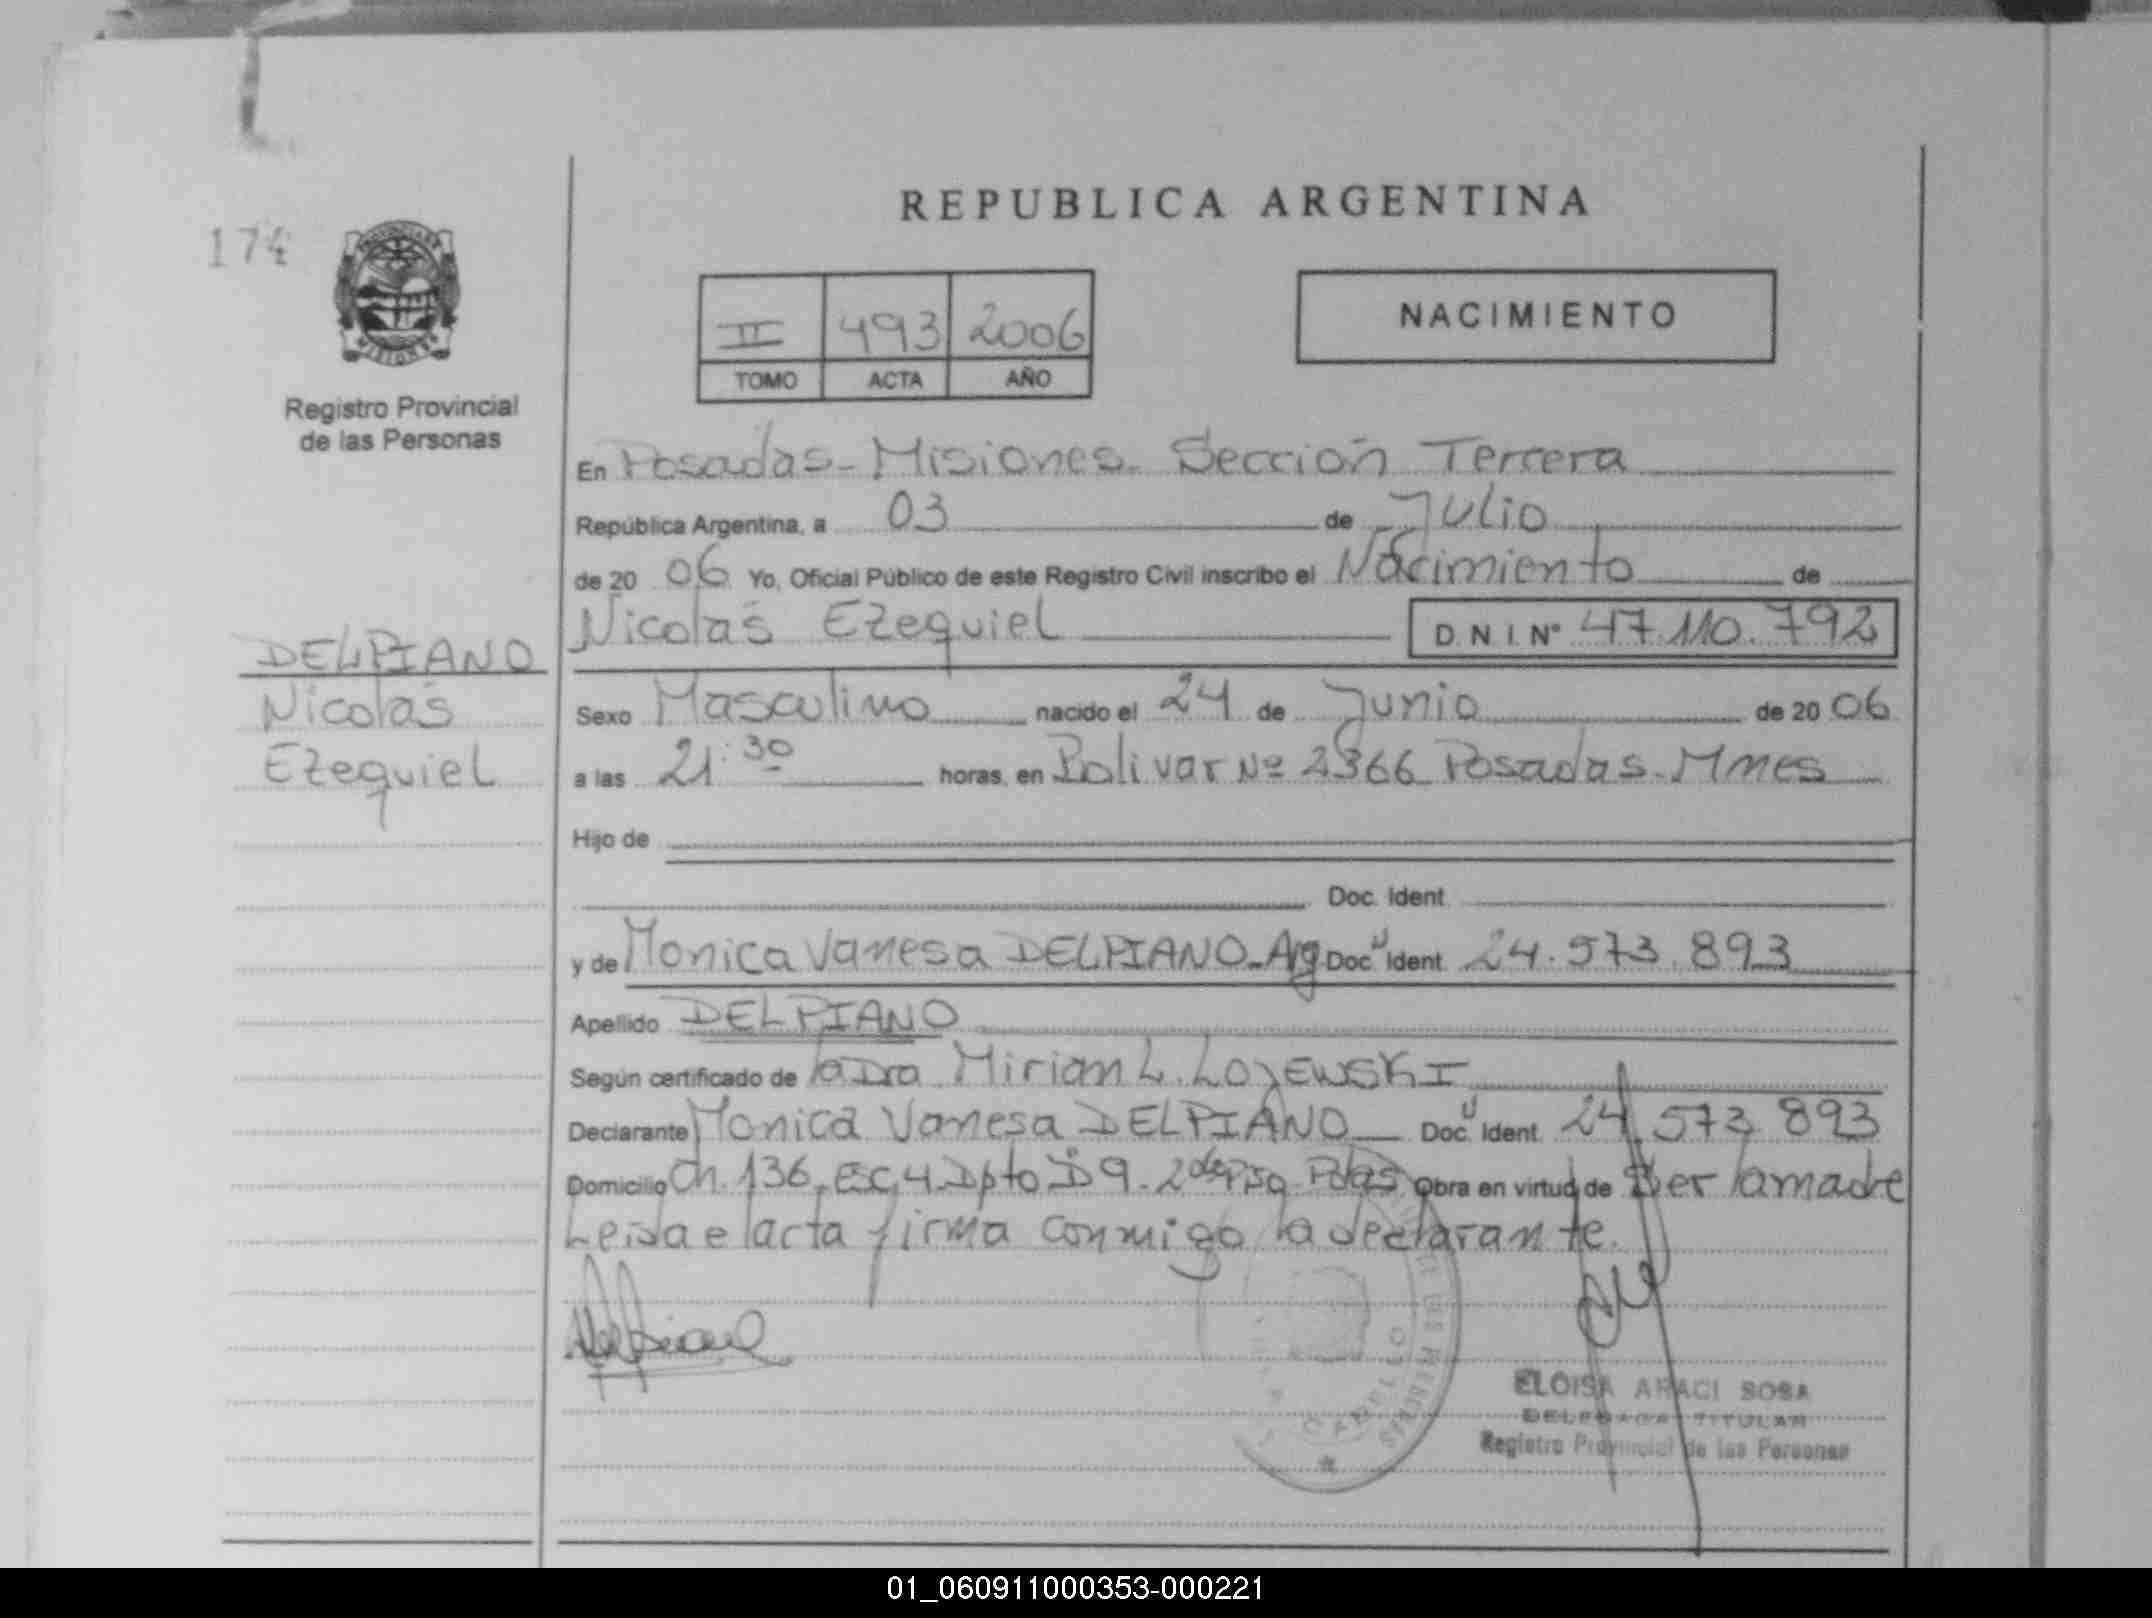 REPUBLICA ARGENTINA
174
PROVINCIA DE
MISIONES
Registro Provincial
de las Personas
II 493 2006
TOMO ACTA AÑO
NACIMIENTO
En Posadas - Misiones - Sección Tercera
República Argentina, a 03 de Julio
de 20 06 Yo, Oficial Público de este Registro Civil inscribo el Nacimiento de
Nicolás Ezequiel D.N.I. Nº 47.110.792
DELPIANO
Nicolás
Ezequiel
Sexo Masculino nacido el 24 de Junio de 20 06
a las 21:30 horas, en Bolivar Nº 2366 Posadas - Mnes
Hijo de
Doc. Ident.
y de Monica Vanesa DELPIANO - Arg Doc U Ident. 24.573.893
Apellido DELPIANO
Según certificado de la Dra Mirian L. LOJEWSKI
Declarante Monica Vanesa DELPIANO Doc. U Ident. 24.573.893
Domicilio Ch. 136 - Esc 4 - Dpto D 9 - 2do Piso Pdas Obra en virtud de Ser la madre
Leida el acta firma conmigo la declarante.
ELOISA ARACI SOSA
DELEGADA TITULAR
Registro Provincial de las Personas
01_060911000353-000221